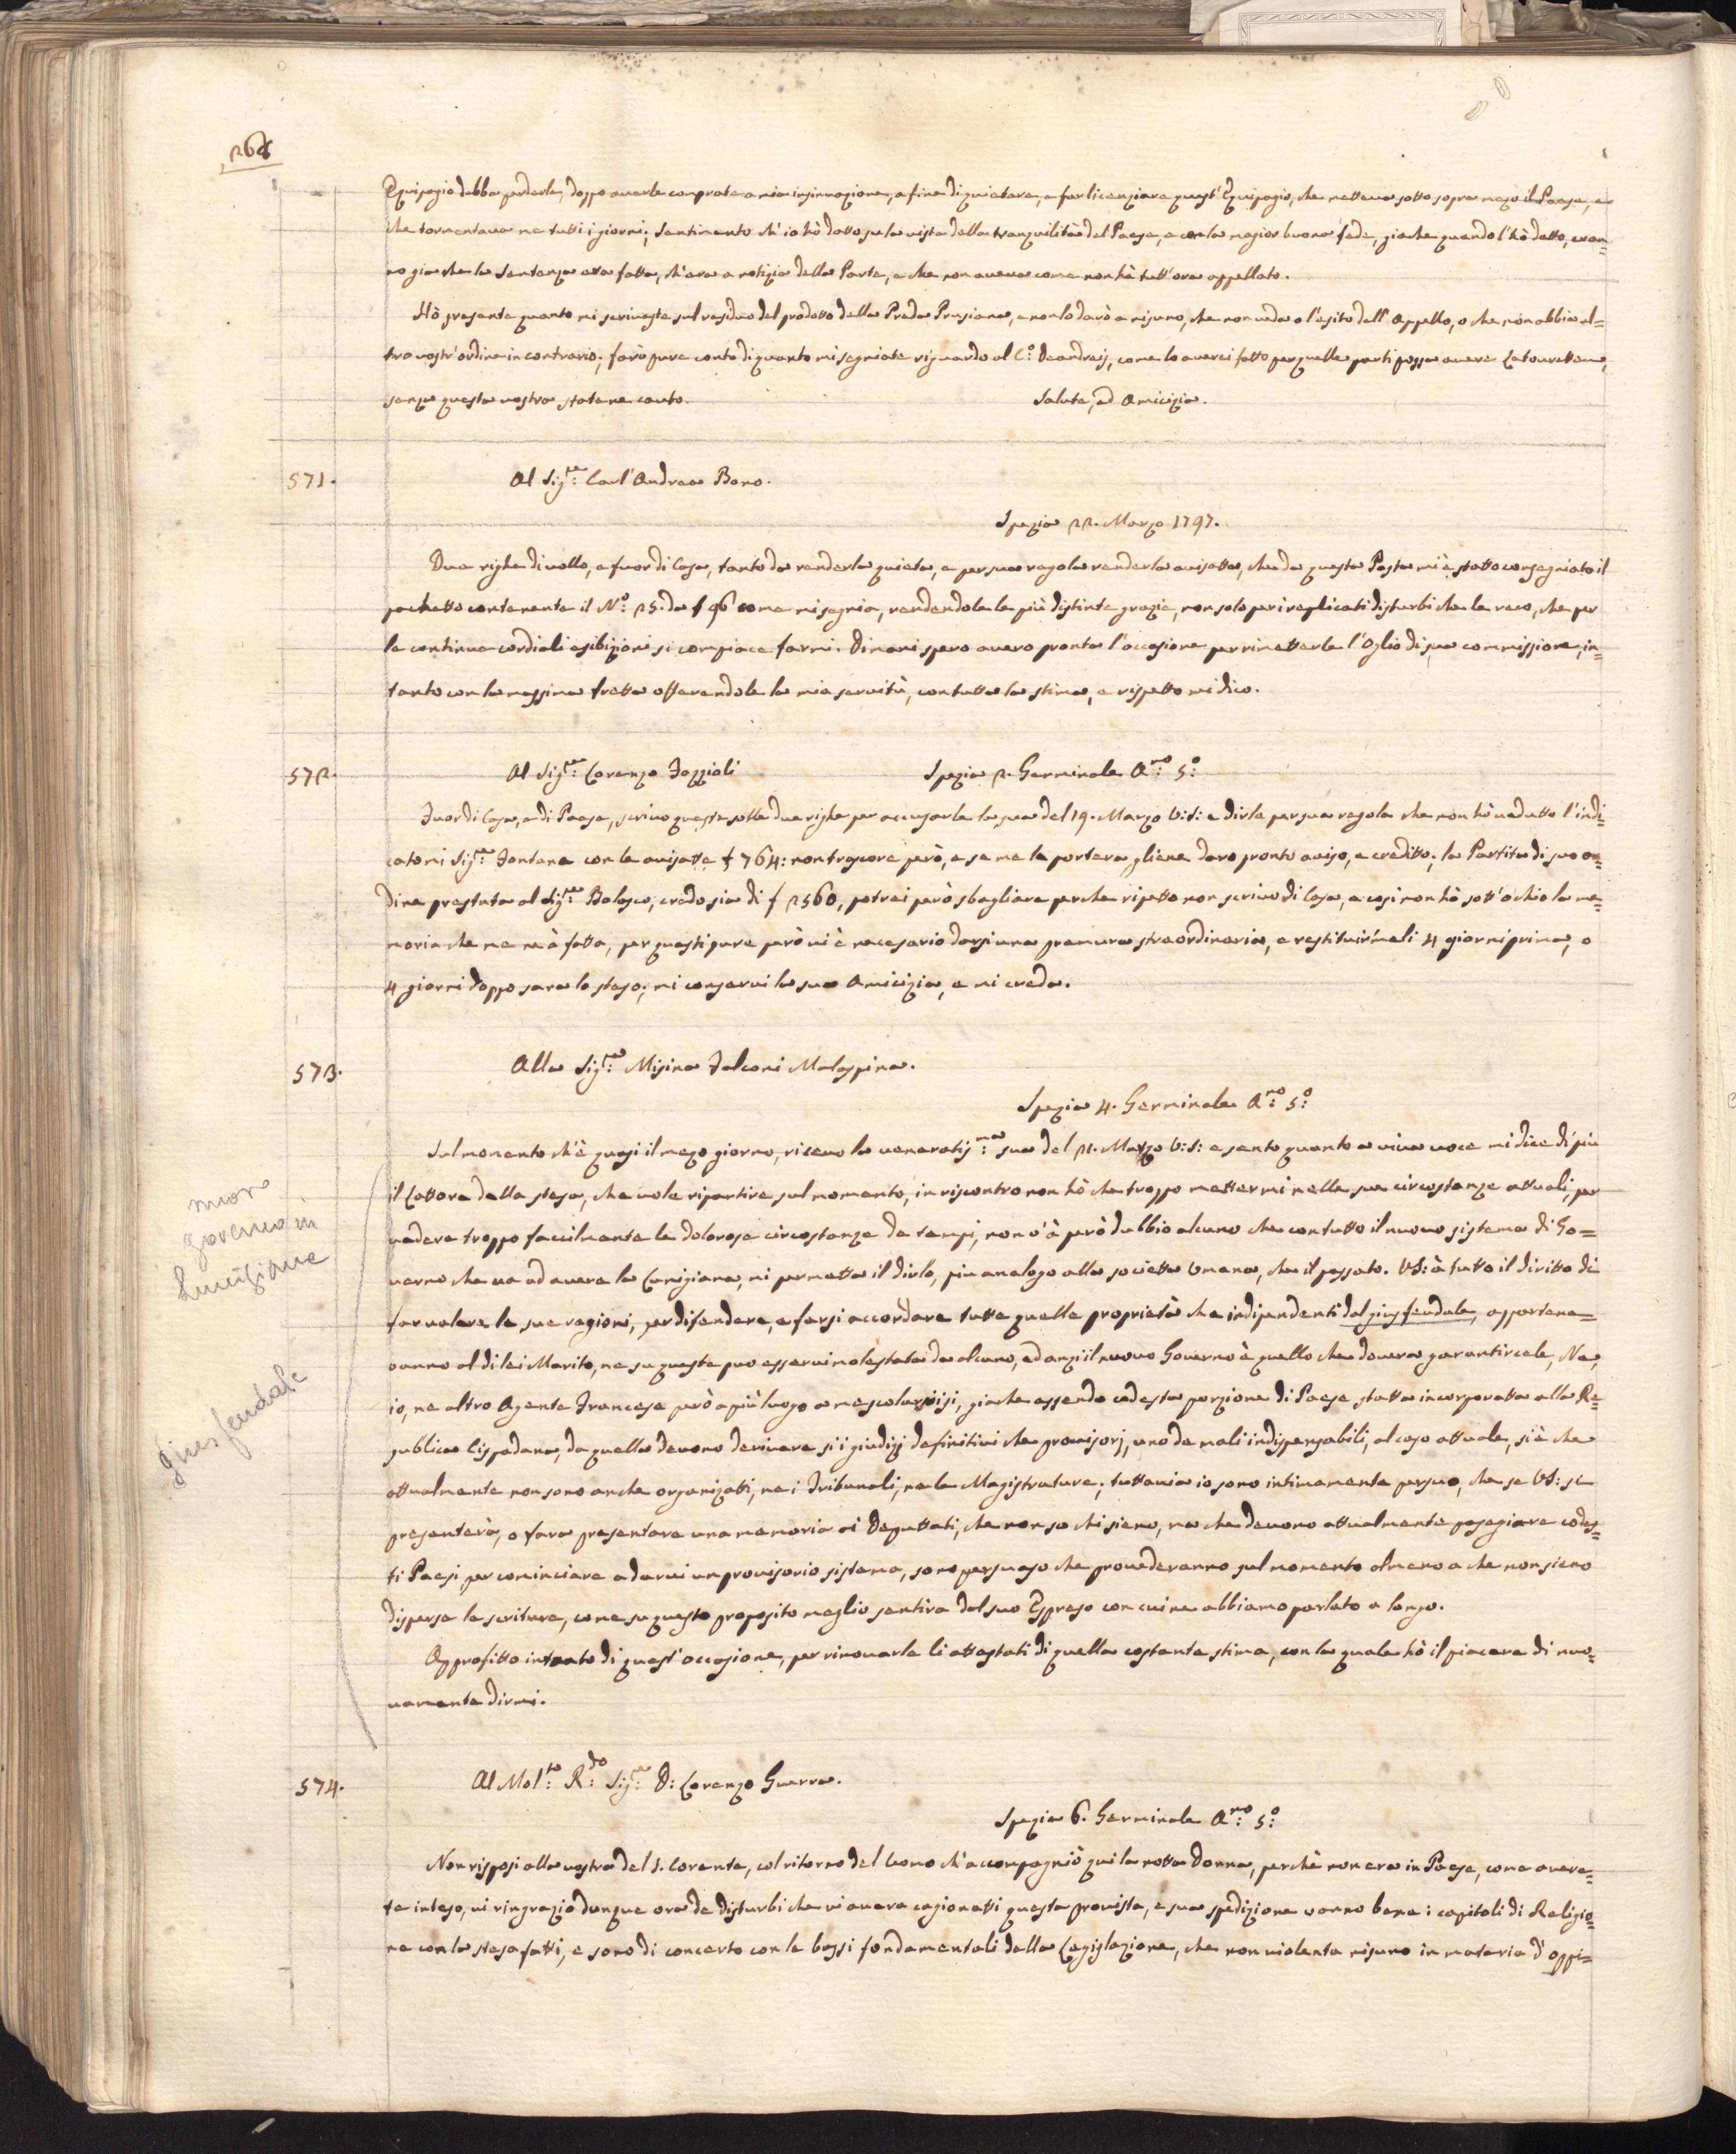 268
Equipagio debba perderle, doppo averle comprate a mia insinuazione, a fine di quietare, e far licenziare quest'Equipagio, che metteva sotto sopra mezo il Paese, e
che tormentava me tutti i giorni; sentimento ch'io hò datto su la vista della tranquilità del Paese, e con la magior buona fede, giache quando l'hò datto, eran=
no gia che la sentenza era fatta, ch'era a notizia della Parte, e che non aveva come non hà tutt'ora appellato.
Hò presente quanto mi scriveste sul residuo del prodotto della Preda Prusiana, e non lo darò a nisuno, che non veda o l'esito dell'Appello, o che non abbia al=
tro vostr'ordine in contrario; farò pure conto di quanto mi segniate riguardo al C:º Deandreis, come lo averei fatto per quelle parti possa avere Latourette,
senza questa vostra statene certo. Salute, ed Amicizia.
571. Al Sig:re Carl'Andrea Bono.
Spezia 22. Marzo 1797.
Due righe di vollo, e fuor di Casa, tanto da renderla quieta, e per sua regola renderla avisatta, che da questa Posta mi è statto consegniato il
pachetto contenente il Nº: 25. da f 96 come mi segnia, rendendole le più distinte grazie, non solo per i replicati disturbi che le reco, che per
le continue cordiali esibizioni si compiace farmi. Dimani spero avero pronta l'occasione per rimetterle l'Oglio di sua commissione, in=
tanto con la massima fretta offerendole la mia servitù, con tutta la stima, e rispetto mi dico.
572. Al Sig:re Lorenzo Fazzioli Spezia 2. Germinale A:no 5:º
Fuor di Casa, e di Paese, scrivo queste solle due righe per accusarle la sua del 19. Marzo V:S: e dirle per sua regola che non hò vedutto l'indi=
catomi Sig:re Fontana con le avisatte f 764: non trascore però, e se me le portera gliene daro pronto aviso, e creditto; la Partita di suo or=
dine prestata al Sig:re Bolasco, credo sia di f 2560, potrei però sbagliare perche ripetto non scrivo di Casa, e cosi non hò sott'ochio la me=
moria che me ne à fatta, per questi pure però vi è necesario darsi una premura straordinaria, e restituirmeli 4 giorni prima, o
4 giorni doppo sara lo steso; mi conservi la sua Amicizia, e mi creda.
573. Alla Sig:ra Misina Falconi Malaspina.
Spezia 4. Germinale A:no 5:º
Sul momento ch'è quasi il mezo giorno, ricevo la veneratis:ma sua del 21. Marzo V:S: e sento quanto a viva voce mi dice di più
il Lattore della stesa, che vole ripartire sul momento, in riscontro non hò che troppo mettermi nelle sue circostanze attuali, per
nuovo
governo in
Lunigiana
vedere troppo facilmente le dolorose circostanze de tempi, non v'à però dubbio alcuno che con tutto il nuovo sistema di Go=
verno che va ad avere la Lunigiana, mi permetta il dirlo, piu analogo alla societta Umana, che il passato. VS: à tutto il diritto di
far valere le sue ragioni, per difendere, e farsi accordare tutte quelle proprietà che indipendenti dal gius feudale, appartene=
vanno al di lei Marito, ne su queste puo esservi molestata da alcuno, ed anzi il nuovo Governo è quello che dovera garantircele, Ne,
gius feudale
io, ne altro Agente Francese però à più luogo a mescolarvisi, giache essendo codesta porzione di Paese statta incorporatta alla Re=
publica Cispadana, da quella devono derivare si i giudizj definitivi che provisorj, uno de mali indispensabili, al caso attuale, si è che
attualmente non sono anche organizatti, ne i Tribunali, ne le Magistrature; tuttavia io sono intimamente persuo, che se VS: si
presenterà, o fara presentare una memoria ai Deputtati, che non so chi sieno, ma che devono attualmente pasegiare codes=
ti Paesi, per cominciare a darvi un provisorio sistema, sono persuaso che provederanno sul momento almeno a che non sieno
disperse le scriture, come su questo proposito meglio sentira dal suo Espreso con cui ne abbiamo parlato a longo.
Approfitto intanto di quest'occasione, per rinovarle li attestati di quella costante stima, con la quale hò il piacere di nuo=
vamente dirmi.
574. Al Mol:to R:do Sig:re D: Lorenzo Guerra.
Spezia 6. Germinale A:no 5:º
Non risposi alla vostra del 1. Corente, col ritorno del Uomo ch'accompagniò qui la notta Donna, perchè non era in Paese, come avere=
te inteso, vi ringrazio dunque ora de disturbi che vi avera cagionatti questa provista, e sua spedizione vanno bene i capitoli di Religio=
ne con la stesa fatti, e sono di concerto con le bassi fondamentali della Legislazione, che non violenta nisuno in materia d'oppi=